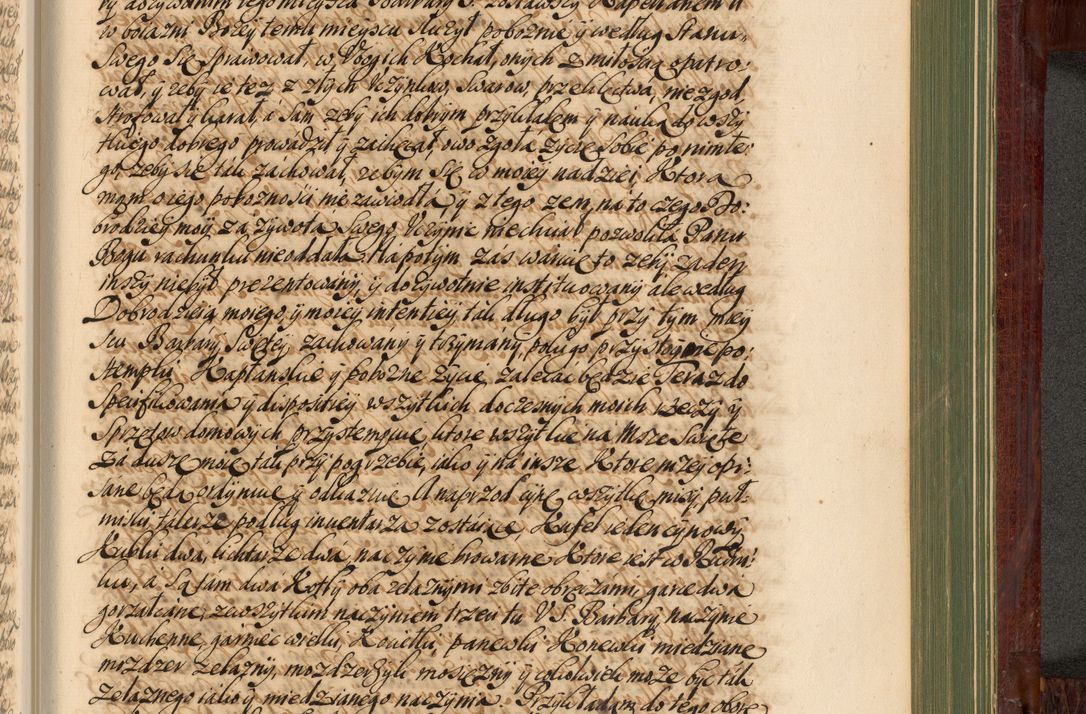 ry dożywotnim tego mieysca Barbary S. zostawszy Kapellanem
w boiazni Bozey temu mieyscu służył poboznie y według Stanu
Swego Się Sprawował, w Vbogich Kochał, onych z miłością opatro:
wał, y zeby ie tez z złych Vczynkow, Swarow, przeklectwa, niezgod,
Strofował y karał, a Sam zeby ich dobrym przykładem y nauką do wszy
tkiego dobrego prowadził y zachęcał, owo zgoła zycie Sobie po nim te
go, zeby się tak zachował, zebym Się w moiey nadziei, Ktora
mam o iego poboznosci nie zawiodła, y z tego zem, na to czego Do:
brodziey moy za zywota Swego Vczynic nie chciał pozwoliła, Panu
Bogu rachunku nie oddała. Napotym zas waruię to zeby zaden
inszy nie był prezentowany, y dozywotnie instituowany ale według
Dobrodzieia moiego y moiey intentiey tak długo był przy tym miey
scu Barbary Swiętey, zachowany y trzymany, poki go przystoyne po:
stempki Kapłanskie y pobozne zycie, zalecac będzie. Teraz do
Specifikowania y dispositiey wszytkich doczesnych moich rzeczy y
Sprzętow domowych przystempuię, ktore wszytkie na Msze Swięte
za duszę moię tak przy pogrzebie, iako y na insze Ktore nizey opi:
sane będą ordynuię y odkazuię. A naprzod cynę wszytkę, misy, puł
miski, talerze podług inuentarza zostaiące, Kufel ieden cynowy,
Kubki dwa, lichtarze dwa, naczynie browarne Ktore iest w Radom:
ku, a Są tam dwa Kotły oba zelaznymi zbite obręczami, garce dwa
gorzałczane, ze wszytkim naczyniem trzeci tu V S. Barbary, naczynie
Kuchenne, garniec wielki, Kociełki, panewki Konewki miedziane
mozdzerz zelazny, mozdzerzyk mosięzny y cokolwiek moze byc tak
zelaznego iako y miedzianego naczynia. Przykładam do tego obore